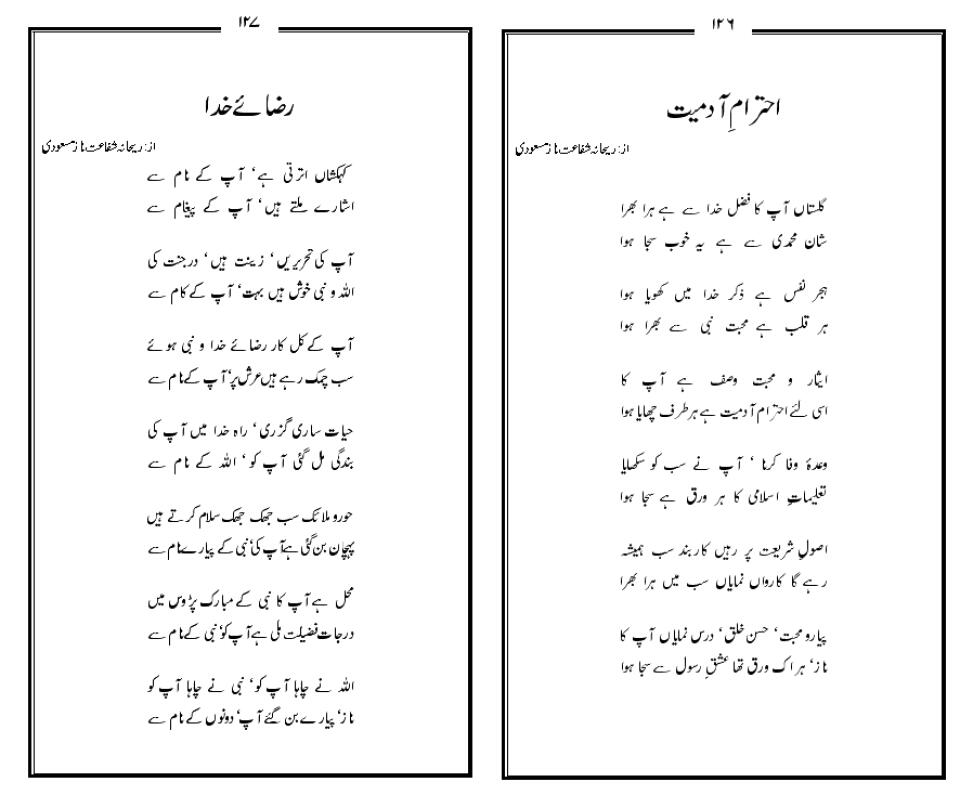 ۱۲۶
احترامِ آدمیت
از: ریحانہ شفاعت ناز مسعودی
گلستاں آپ کا فضل خدا سے ہے ہرا بھرا
شان محمدی سے ہے یہ خوب سجا ہوا
ہجر نفس ہے ذکر خدا میں کھویا ہوا
ہر قلب ہے محبت نبی سے بھرا ہوا
ایثار و محبت وصف ہے آپ کا
اسی لئے احترام آدمیت ہے ہر طرف چھایا ہوا
وعدۂ وفا کرنا ‘ آپ نے سب کو سکھایا
تعلیماتِ اسلامی کا ہر ورق ہے سجا ہوا
اصولِ شریعت پر رہیں کاربند سب ہمیشہ
رہے گا کارواں نمایاں سب میں ہرا بھرا
پیار و محبت‘ حسن خلق‘ درس نمایاں آپ کا
ناز‘ ہر اک ورق تھا عشقِ رسول سے سجا ہوا
۱۲۷
رضائے خدا
از: ریحانہ شفاعت ناز مسعودی
کہکشاں اترتی ہے‘ آپ کے نام سے
اشارے ملتے ہیں‘ آپ کے پیغام سے
آپ کی تحریریں‘ زینت ہیں‘ در جنت کی
اللہ و نبی خوش ہیں بہت‘ آپ کے کام سے
آپ کے کل کار رضائے خدا و نبی ہوئے
سب چمک رہے ہیں عرش پر‘ آپ کے نام سے
حیات ساری گزری‘ راہ خدا میں آپ کی
بندگی مل گئی آپ کو‘ اللہ کے نام سے
حور و ملائک سب جھک جھک سلام کرتے ہیں
پہچان بن گئی ہے آپ کی‘ نبی کے پیارے نام سے
محل ہے آپ کا نبی کے مبارک پڑوس میں
درجات فضیلت ملی ہے آپ کو‘ نبی کے نام سے
اللہ نے چاہا آپ کو‘ نبی نے چاہا آپ کو
ناز‘ پیارے بن گئے آپ‘ دونوں کے نام سے